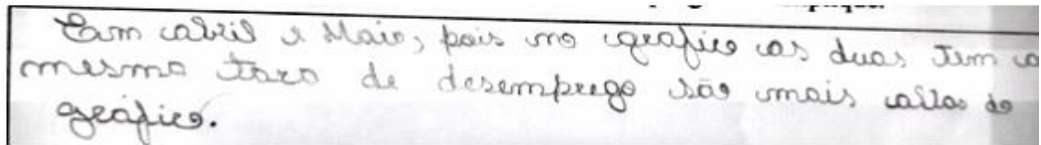 Em abril e Maio, pois no grafico as duas tem a
mesma taxa de desemprego são mais altas do
gráfico.